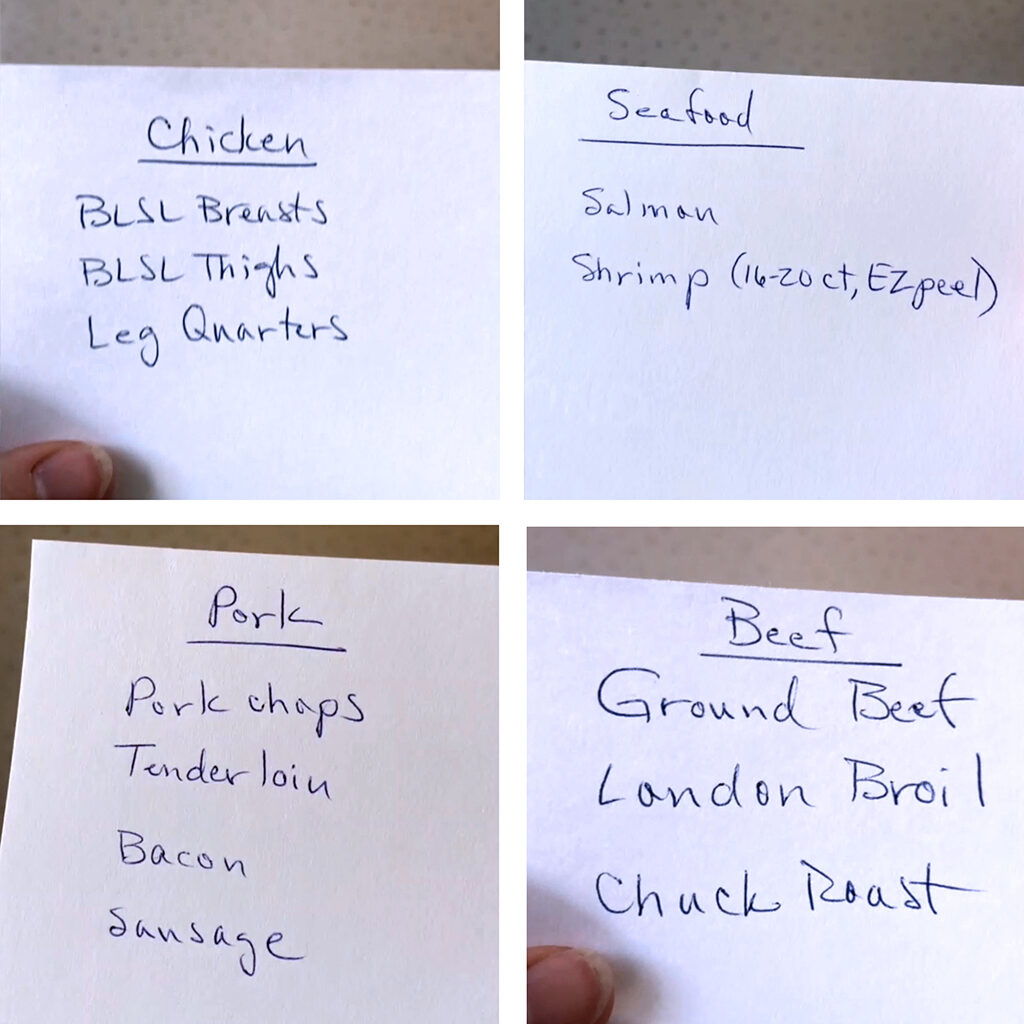 Chicken
BLSL Breasts
BLSL Thighs
Leg Quarters
Seafood
Salmon
Shrimp (16-20 ct, EZ peel)
Pork
Pork chops
Tenderloin
Bacon
Sausage
Beef
Ground Beef
London Broil
Chuck Roast